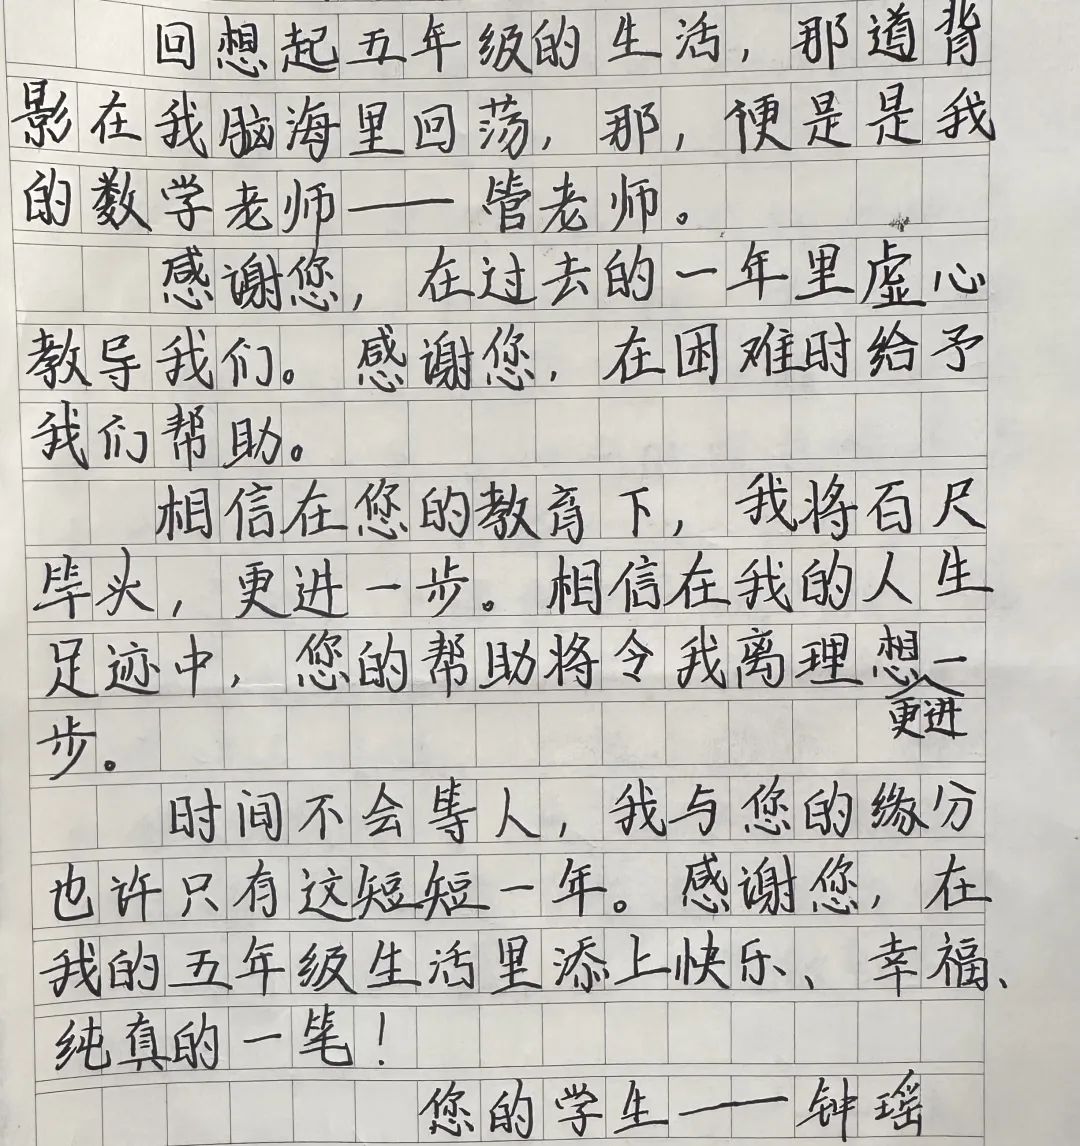 回想起五年级的生活，那道背
影在我脑海里回荡，那，便是是我
的数学老师——管老师。
感谢您，在过去的一年里虚心
教导我们。感谢您，在困难时给予
我们帮助。
相信在您的教育下，我将百尺
竿头，更进一步。相信在我的人生
足迹中，您的帮助将令我离理想更进一
步。
时间不会等人，我与您的缘分
也许只有这短短一年。感谢您，在
我的五年级生活里添上快乐、幸福、
纯真的一笔！
您的学生——钟瑶